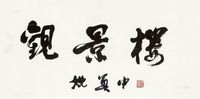 觀景樓
姚奠中